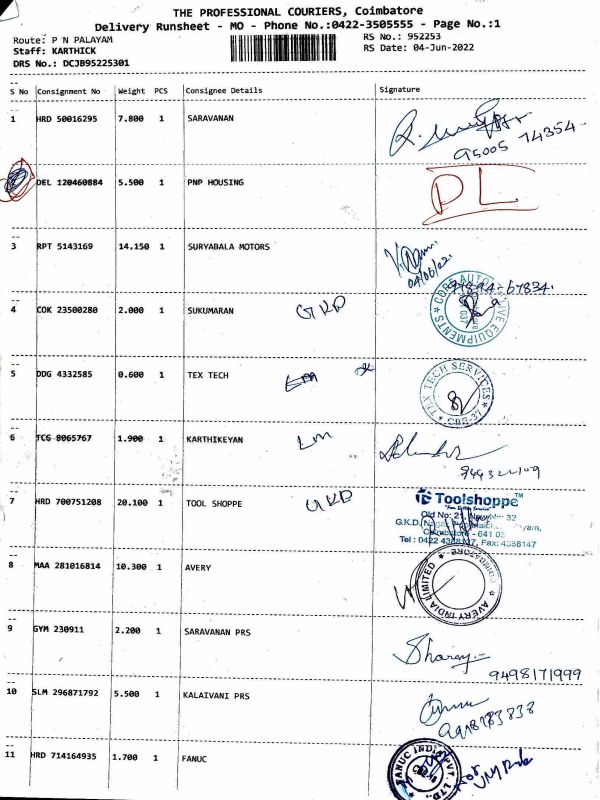 THE PROFESSIONAL COURIERS, Coimbatore
Delivery Runsheet - MO - Phone No.:0422-3505555 - Page No.:1
Route: P N PALAYAM
RS No.: 952253
Staff: KARTHICK
RS Date: 04-Jun-2022
DRS No.: DCJB95225301
S No Consignment No Weight PCS Consignee Details Signature
1 HRD 50016295 7.800 1 SARAVANAN
95005 74354
DEL 120460884 5.500 1 PNP HOUSING DL
3 RPT 5143169 14.150 1 SURYABALA MOTORS
04/06/22
97894-67834.
4 COK 23500280 2.000 1 SUKUMARAN GKD
CORE AUTOMOTIVE EQUIPMENTS
5 DDG 4332585 0.600 1 TEX TECH
TEX TECH SERVICES
CBE-37
6 TCG 8065767 1.900 1 KARTHIKEYAN LM
7 HRD 700751208 20.100 1 TOOL SHOPPE GKD
Toolshoppe™
Old No: 21, New No: 32
G.K.D.
Coimbatore - 641 03
Tel : 0422 Fax: 4388147
8 MAA 281016814 10.300 1 AVERY
AVERY INDIA LIMITED
COIMBATORE
9 GYM 230911 2.200 1 SARAVANAN PRS
Sharay
9498171999
10 SLM 296871792 5.500 1 KALAIVANI PRS
11 HRD 714164935 1.700 1 FANUC
FANUC INDIA PVT. LTD.